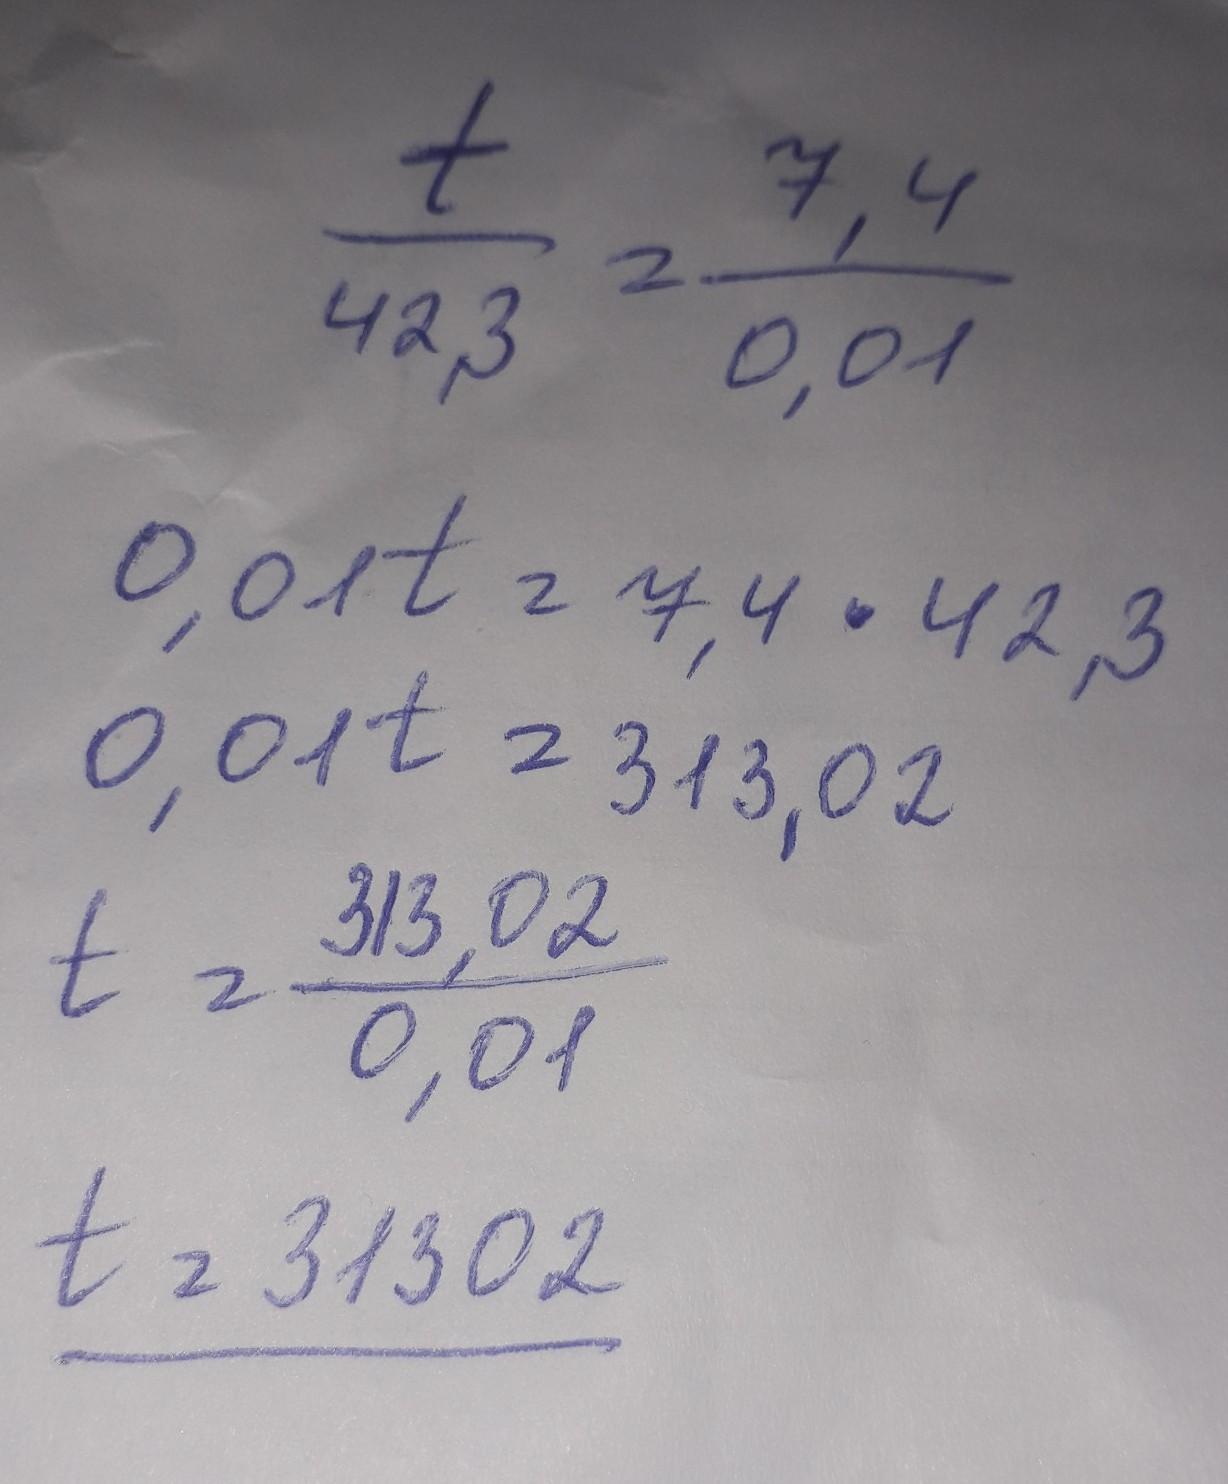 t/42,3 = 7,4/0,01
0,01t = 7,4 · 42,3
0,01t = 313,02
t = 313,02/0,01
t = 31302